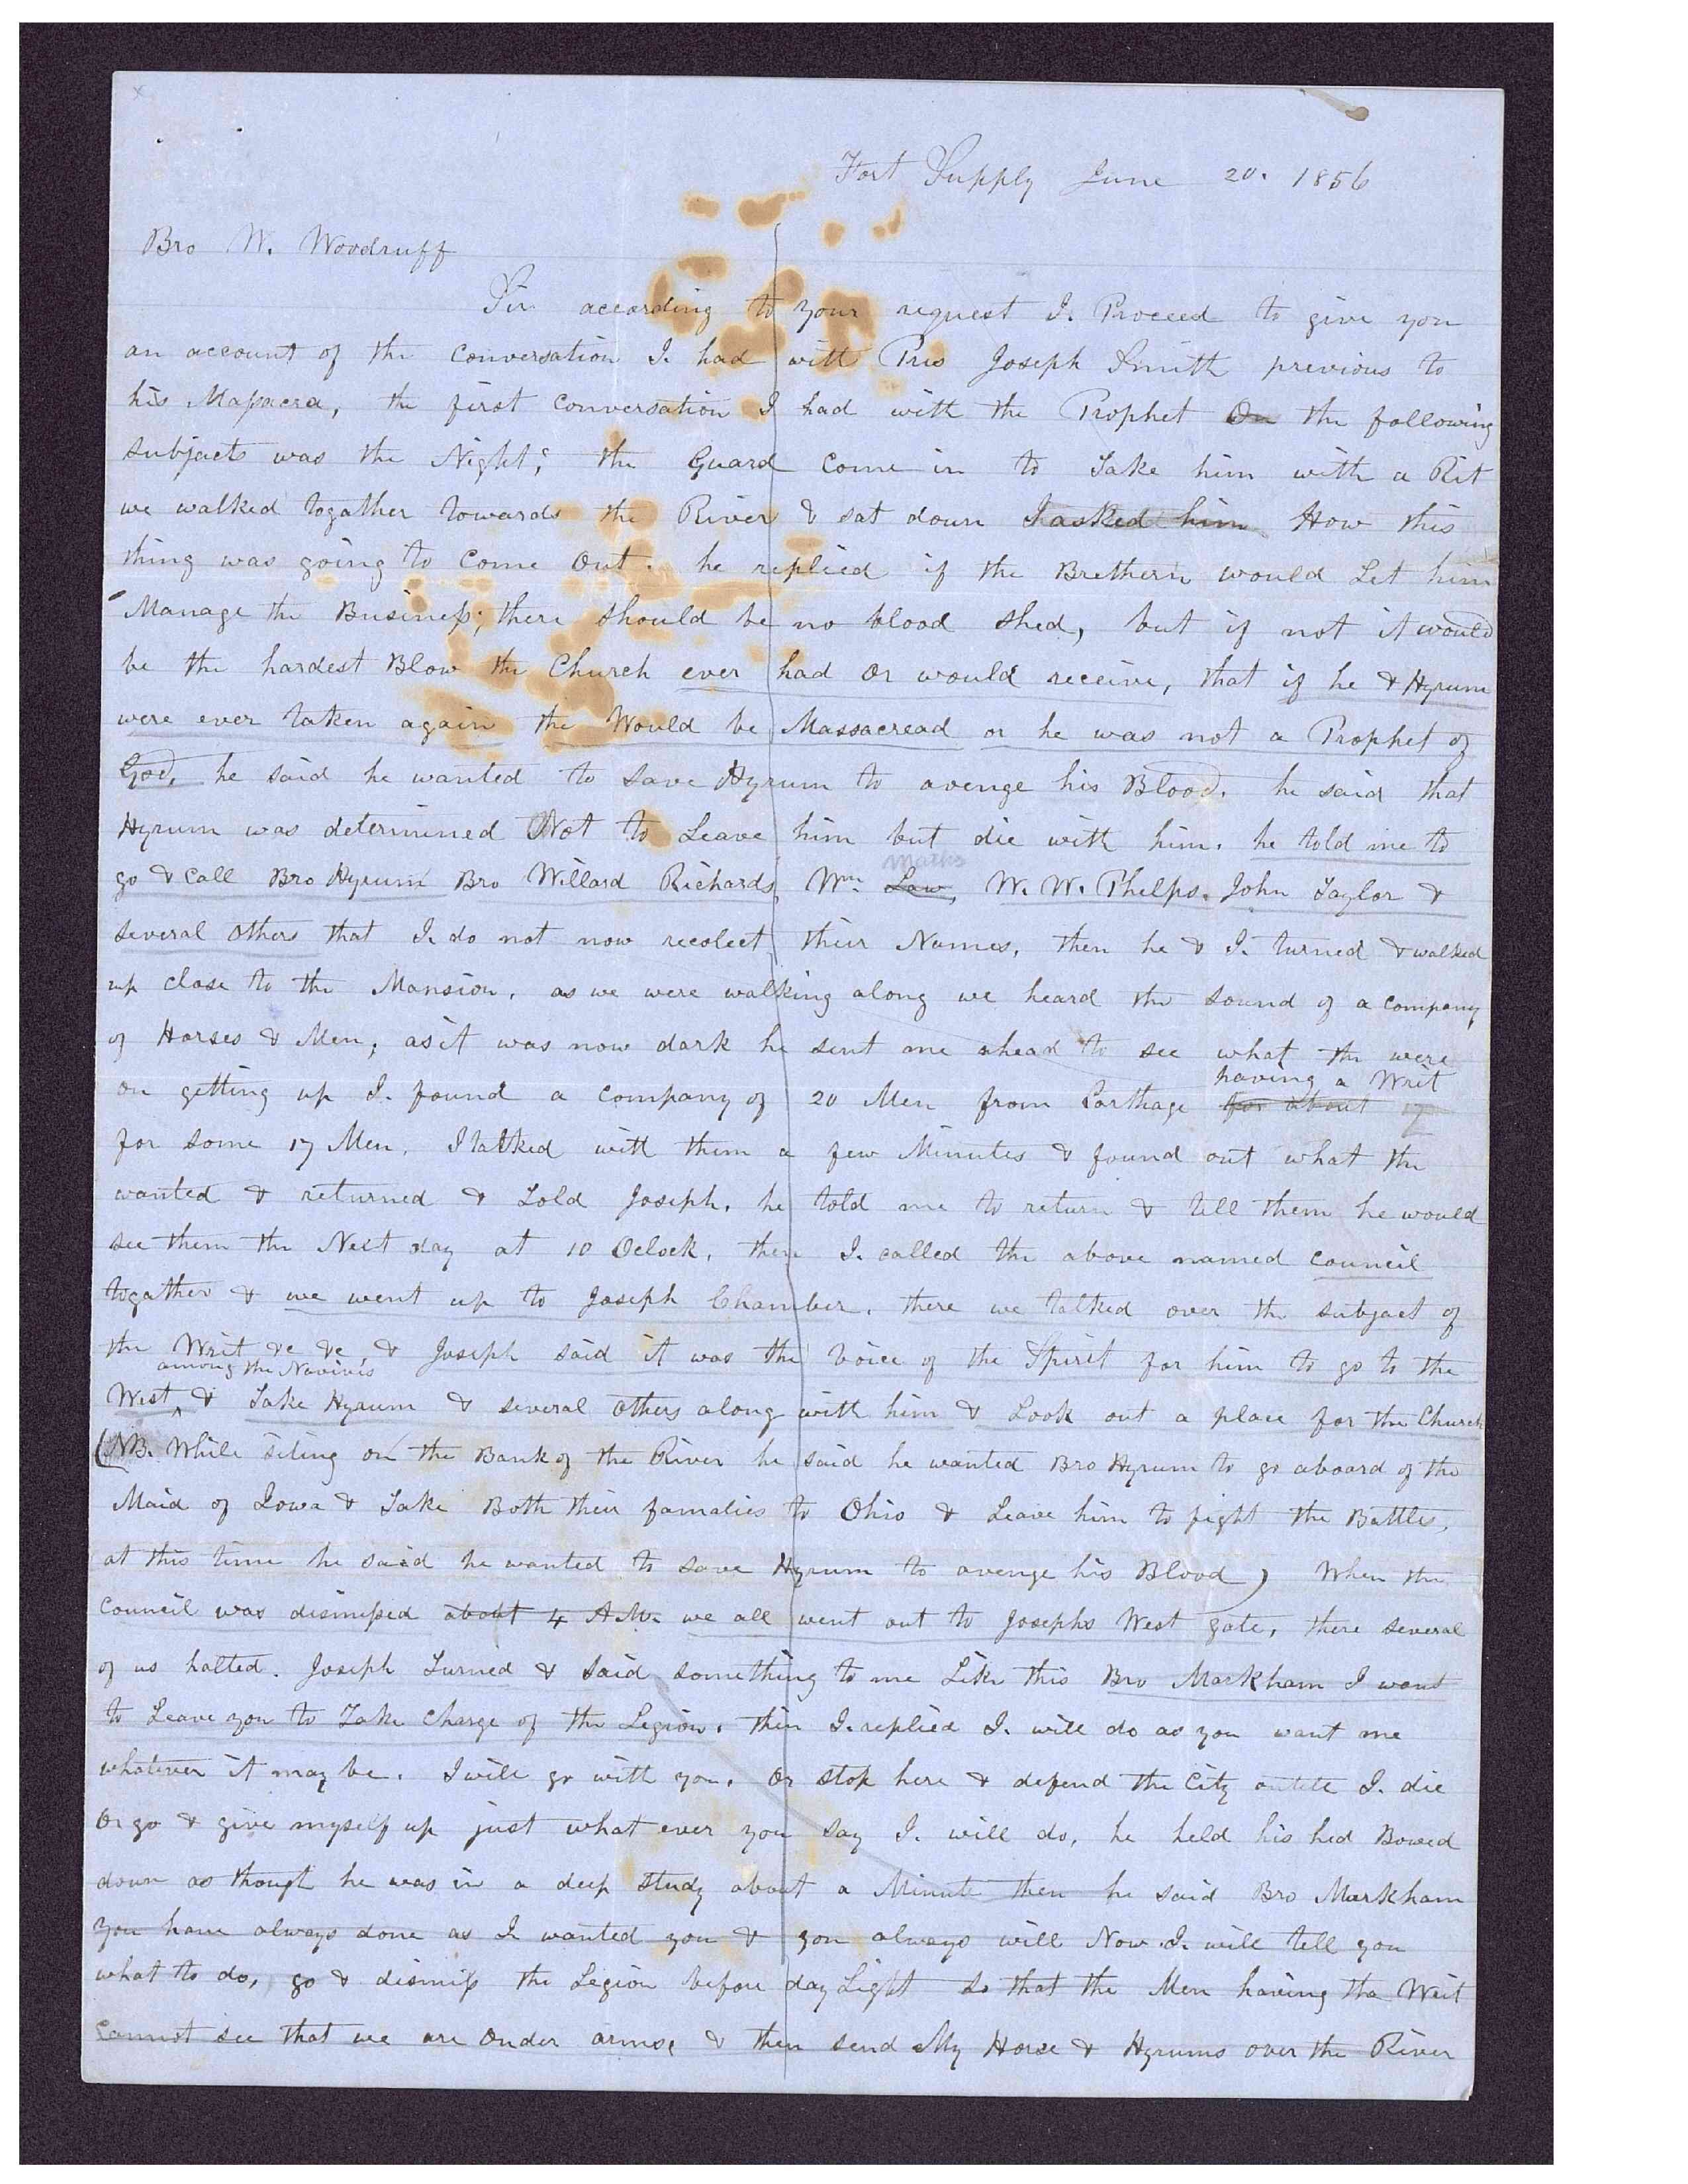 Fort Supply June 20. 1856
Bro W. Woodruff
Sir according to your request I. Proceed to give you
an account of the conversation I. had with Pres Joseph Smith previous to
his Massacra, the first conversation I had with the Prophet On the following
subjects was the Night; the Guard come in to Take him with a Rit
we walked togather towards the River & sat down I asked him How this
thing was going to come out. he replied if the Brethern would Let him
Manage the Business; there should be no blood shed, but if not it would
be the hardest Blow the Church ever had or would receive, that if he & Hyrum
were ever taken again the Would be Massacread or he was not a Prophet of
God, he said he wanted to save Hyrum to avenge his Blood. he said that
Hyrum was determined Not to Leave him but die with him. he told me to
marks
go & call Bro Hyrum Bro Willard Richards, Wm. Law, W. W. Phelps. John Taylor &
several others that I. do not now recolect their Names, then he & I. turned & walked
up close to the Mansion. as we were walking along we heard the sound of a company
of Horses & Men; as it was now dark he sent me ahead to see what the were
having a Writ
on getting up I. found a company of 20 Men from Carthage for about 17
for some 17 Men. I talked with them a few Minutes & found out what the
wanted & returned & Told Joseph. he told me to return & tell them he would
see them the Next day at 10 Oclock. then I. called the above named council
togather & we went up to Joseph Chamber. there we talked over the subject of
the Writ &c &c & Joseph said it was the voice of the Spirit for him to go to the
among the Navivi's
West ^ & Take Hyrum & several others along with him & Look out a place for the Church
(NB. While siting on the Bank of the River he said he wanted Bro Hyrum to go aboard of the
Maid of Iowa & Take Both their famalies to Ohio & Leave him to fight the Battles.
at this time he said he wanted to save Hyrum to avenge his Blood) When the
council was dismissed about 4 A.M. we all went out to Josephs West gate, there several
of us halted. Joseph Turned & said something to me Like this Bro Markham I want
to Leave you to Take charge of the Legion. then I. replied I. will do as you want me
whatever it may be. I will go with you. Or stop here & defend the City untill I. die
Or go & give myself up just what ever you say I. will do, he held his hed Bowed
down as though he was in a deep study about a Minute then he said Bro Markham
you have always done as I wanted you & you always will Now I. will tell you
what to do, go & dismiss the Legion before day Light so that the Men having the Writ
cannot see that we are under arms, & then send My Horse & Hyrums over the River